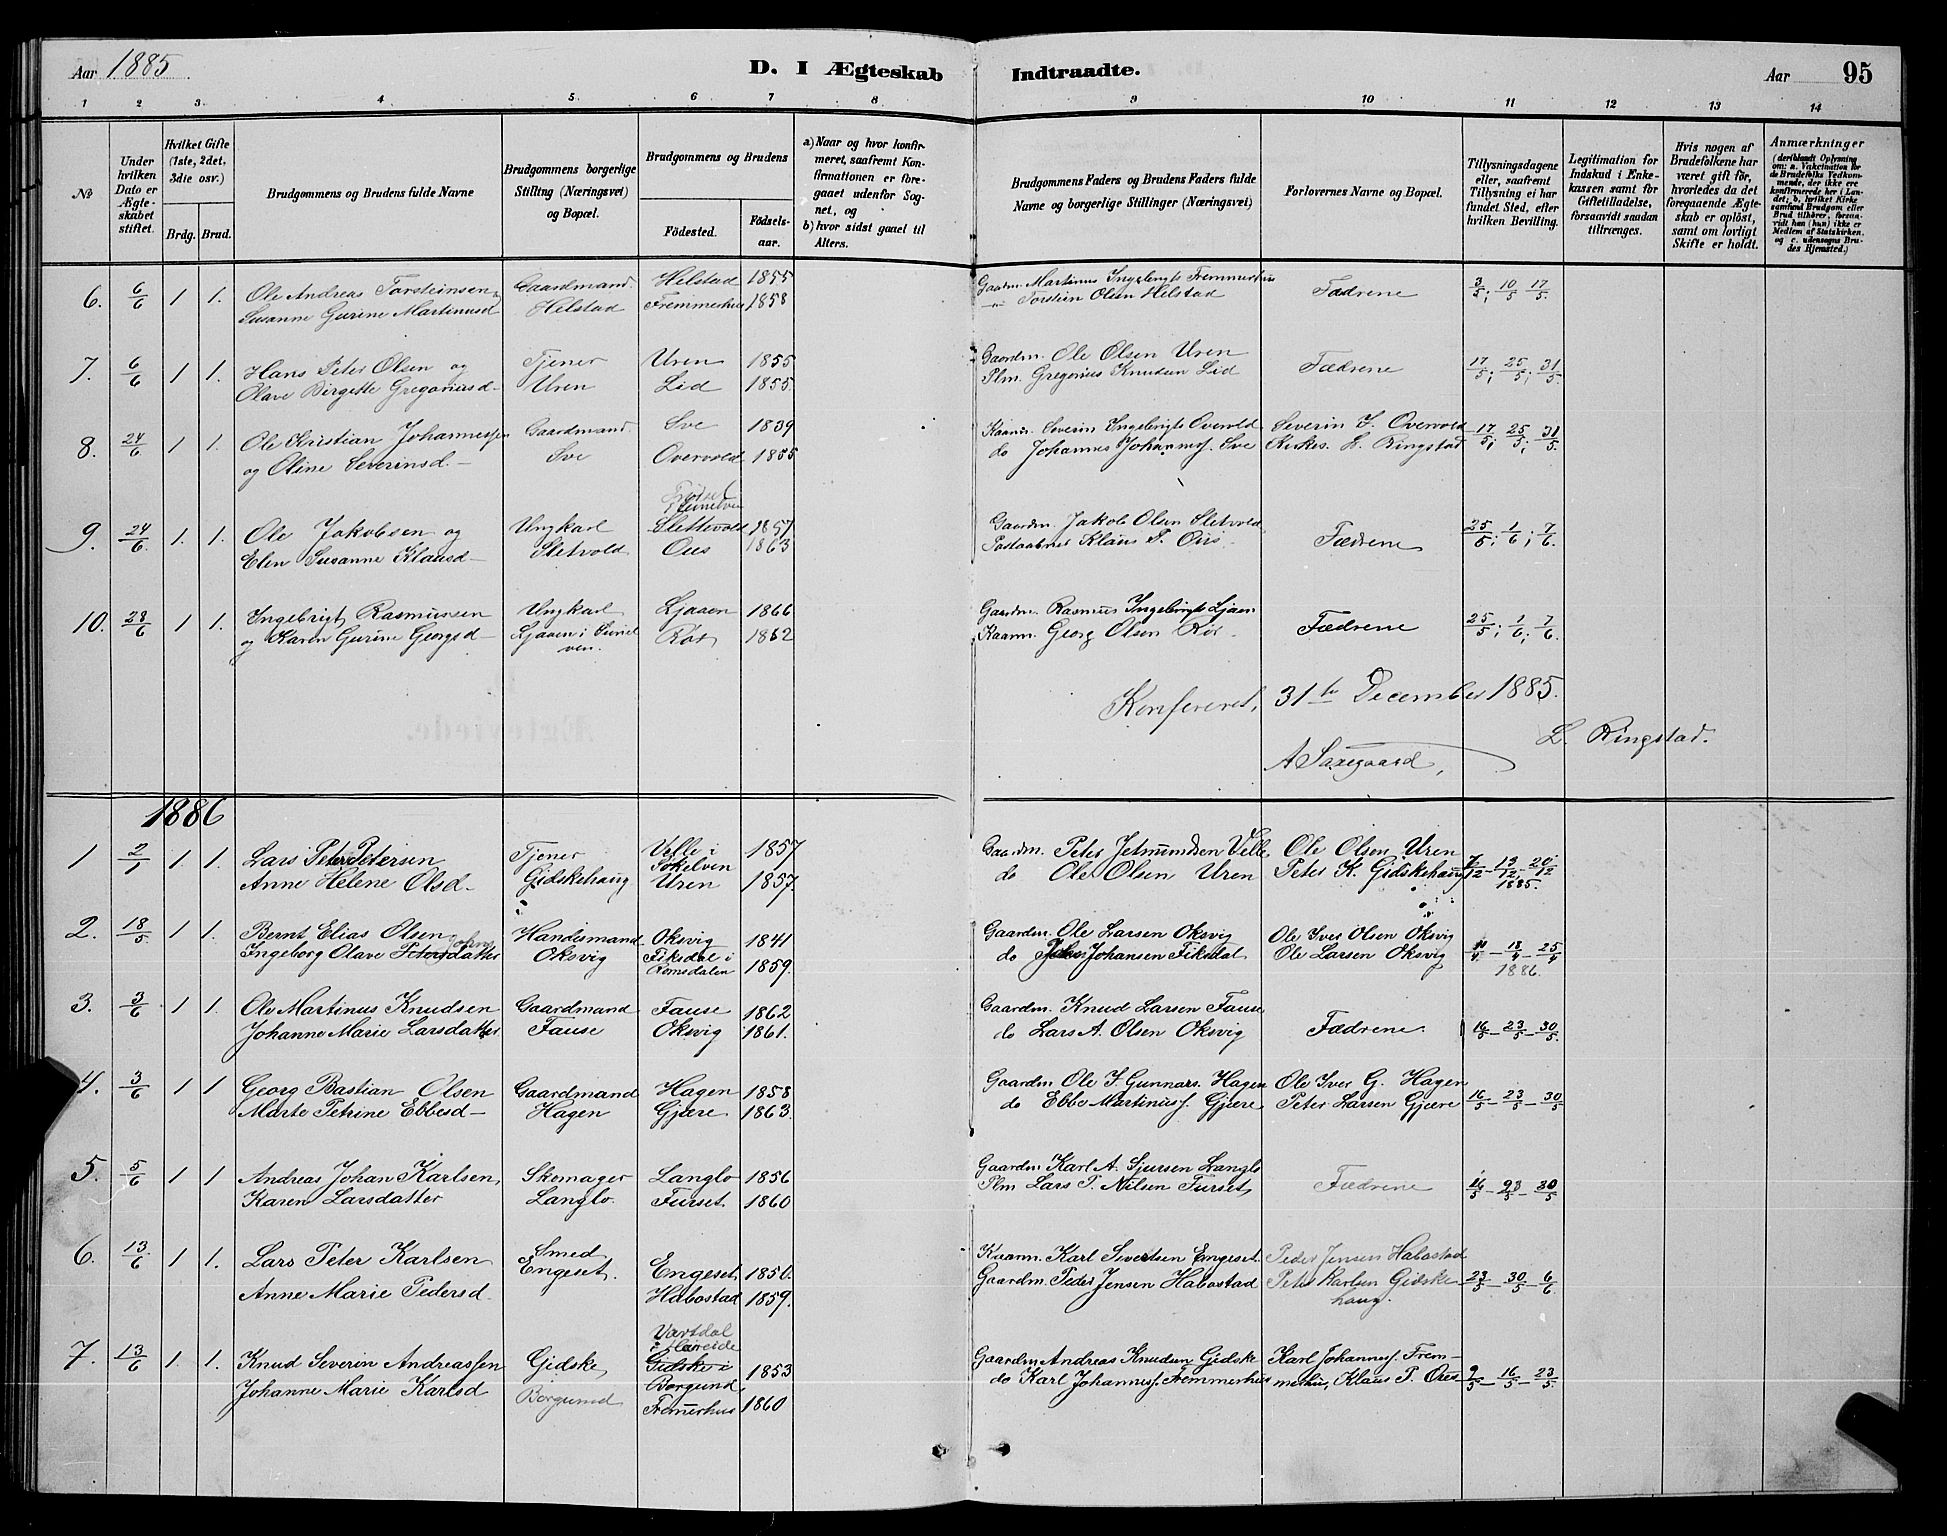 Aar 1885.
D. I Ægteskab Indtraadte.
Aar 95
1 2 3. 4 5. 6 7 8 9 10 11 12 13 14
№
Under hvilken Dato er Ægte-skabet stiftet.
Hvilket Gifte (1ste, 2det, 3die osv.)
Brdg. Brud.
Brudgommens og Brudens fulde Navne
Brudgommens borgerlige Stilling (Næringsvei) og Bopæl.
Brudgommens og Brudens
Fødested. Fødsels-aar.
a) Naar og hvor konfir-meret, saafremt Kon-firmationen er fore-gaaet udenfor Sog-net, og
b) hvor sidst gaaet til Alters.
Brudgommens Faders og Brudens Faders fulde Navne og borgerlige Stillinger (Næringsvei)
Forlovernes Navne og Bopæl.
Tillysningsdagene eller, saafremt Tillysning ei har fundet Sted, efter hvilken Bevilling.
Legitimation for Indskud i Enke-kassen samt for Giftetilladelse, forsaavidt saadan tiltrænges.
Hvis nogen af Brudefolkene har været gift før, hvorledes da det foregaaende Ægte-skab er opløst, samt om lovligt Skifte er holdt.
Anmærkninger
(deriblandt Oplysning om: a. Vakcination for de Brudefolks Vedkom-mende, der ikke ere konfirmerede her i Lan-det; b. hvilket Kirke-samfund Brudgom eller Brud tilhører, forsaa-vidt han (hun) ikke er Medlem af Statskirken, og c. udensogns Bru-des Hjemsted.)
6. 6/6 1 1. Ole Andreas Torsteinsen Gaardmand. Helstad 1855 Gaardm. Martinus Ingebrigts Fremmerhus Fædrene 3/5; 10/5 17/5.
Susanne Gurine Martinusd Helstad Fremmerhus 1858 —"— Torstein Olsen Helstad
7. 6/6 1 1. Hans Peter Olsen og Tjener Uren 1855 Gaardm. Ole Olsen Uren Fædrene 17/5; 25/5; 31/5.
Olave Birgitte Gregoriusd- Uren Lid 1855 Plm. Gregorius Knudsen Lid
8. 24/6 1 1. Ole Kristian Johannessen Gaardmand Sve 1839 Kaarm. Severin Engebrigts Overvold Severin I. Overvold 17/5; 25/5; 31/5
og Oline Severinsd.- Sve Overvold 1855 do Johannes Johannesf. Sve Kirkes. L. Ringstad
9. 24/6. 1. 1. Ole Jakobsen og Ungkarl Slettvold 1857 Gaardm. Jakob Olsen Sletvold Fædrene 25/5; 1/6; 7/6.
Elen Susanne Klausd- Sletvold Ous 1863 Postaabner Klaus P. Ous.
10. 28/6 1 1. Ingebrigt Rasmussen Ungkarl Ljaaen 1866 Gaardm. Rasmus Ingebrigts Ljaen Fædrene 25/5; 1/6; 7/6.
og Karen Gurine Georgsd- Ljaaen i Sunelven. Rør 1862 Kaarm. Georg Olsen Rør.
Konfereret, 31te December 1885.
L. Ringstad.
A Saxegaard,
1886
1 2/1 1. 1. Lars Peter Petersen Tjener Velle i Sökelven 1857 Gaardm. Peter Jetmundsen Velle Ole Olsen Uren 7/12 - 13/12 - 20/12
Anne Helene Olsd- Gidskehaug Uren 1857. do Ole Olsen Uren Peter K. Gidskehaug 1885.
2. 18/5. 1 1. Bernt Elias Olsen Handismand Oksvig 1841 Gaardm. Ole Larsen Oksvig Ole Iver Olsen Oksvig 11/4 - 18/4 - 25/4
Ingeborg Olave Johns Petersdatter Oksvig Fiksdal i Romsdalen 1859. do John Johansen Fiksdal Ole Larsen Oksvig 1886.
3. 3/6 1 1. Ole Martinus Knudsen Gaardmand Fause 1862 Gaardm. Knud Larsen Fause Fædrene. 16/5 - 23/5 - 30/5.
Johanne Marie Larsdatter Fause Oksvig 1861. do Lars A. Olsen Oksvig
4. 3/6 1 1 Georg Bastian Olsen Gaardmand Hagen 1858 Gaardm Ole J. Gunnars. Hagen Ole Iver G. Hagen 16/5 - 23/5 - 30/5
Marte Petrine Ebbesd- Hagen Gjære 1863. do Ebbe Martinusf. Gjære Peter Larsen Gjære
5. 5/6 1 1 Andreas Johan Karlsen, Skomager Langlo 1856 Gaardm Karl A. Sjursen Langlo Fædrene 16/5 - 23/5 - 30/5
Karen Larsdatter Langlo. Furset. 1860 Plm Lars P. Nilsen Furset
6. 13/6 1 1. Lars Peter Karlsen Smed Engeset 1850. Kaarm. Karl Sivertsen Engeset. Peder Jensen Habostad 23/5 - 30/5 - 6/6
Anne Marie Pedersd. Engeset. Habostad 1859. Gaardm. Peder Jensen Habostad Peter Karlsen Gidskehaug.
7. 13/6 1. 1. Knud Severin Andreassen Gidske Vartdal i Hareide Gidske i Borgund 1853 Gaardm Andreas Knudsen Gidske Karl Johannesf. Frem- 9/5 - 16/5 - 23/5.
Johanne Marie Karlsd Borgund Fremerhus 1860 do Karl Johannesf. Fremmerhus merhus, Klaus P. Oues